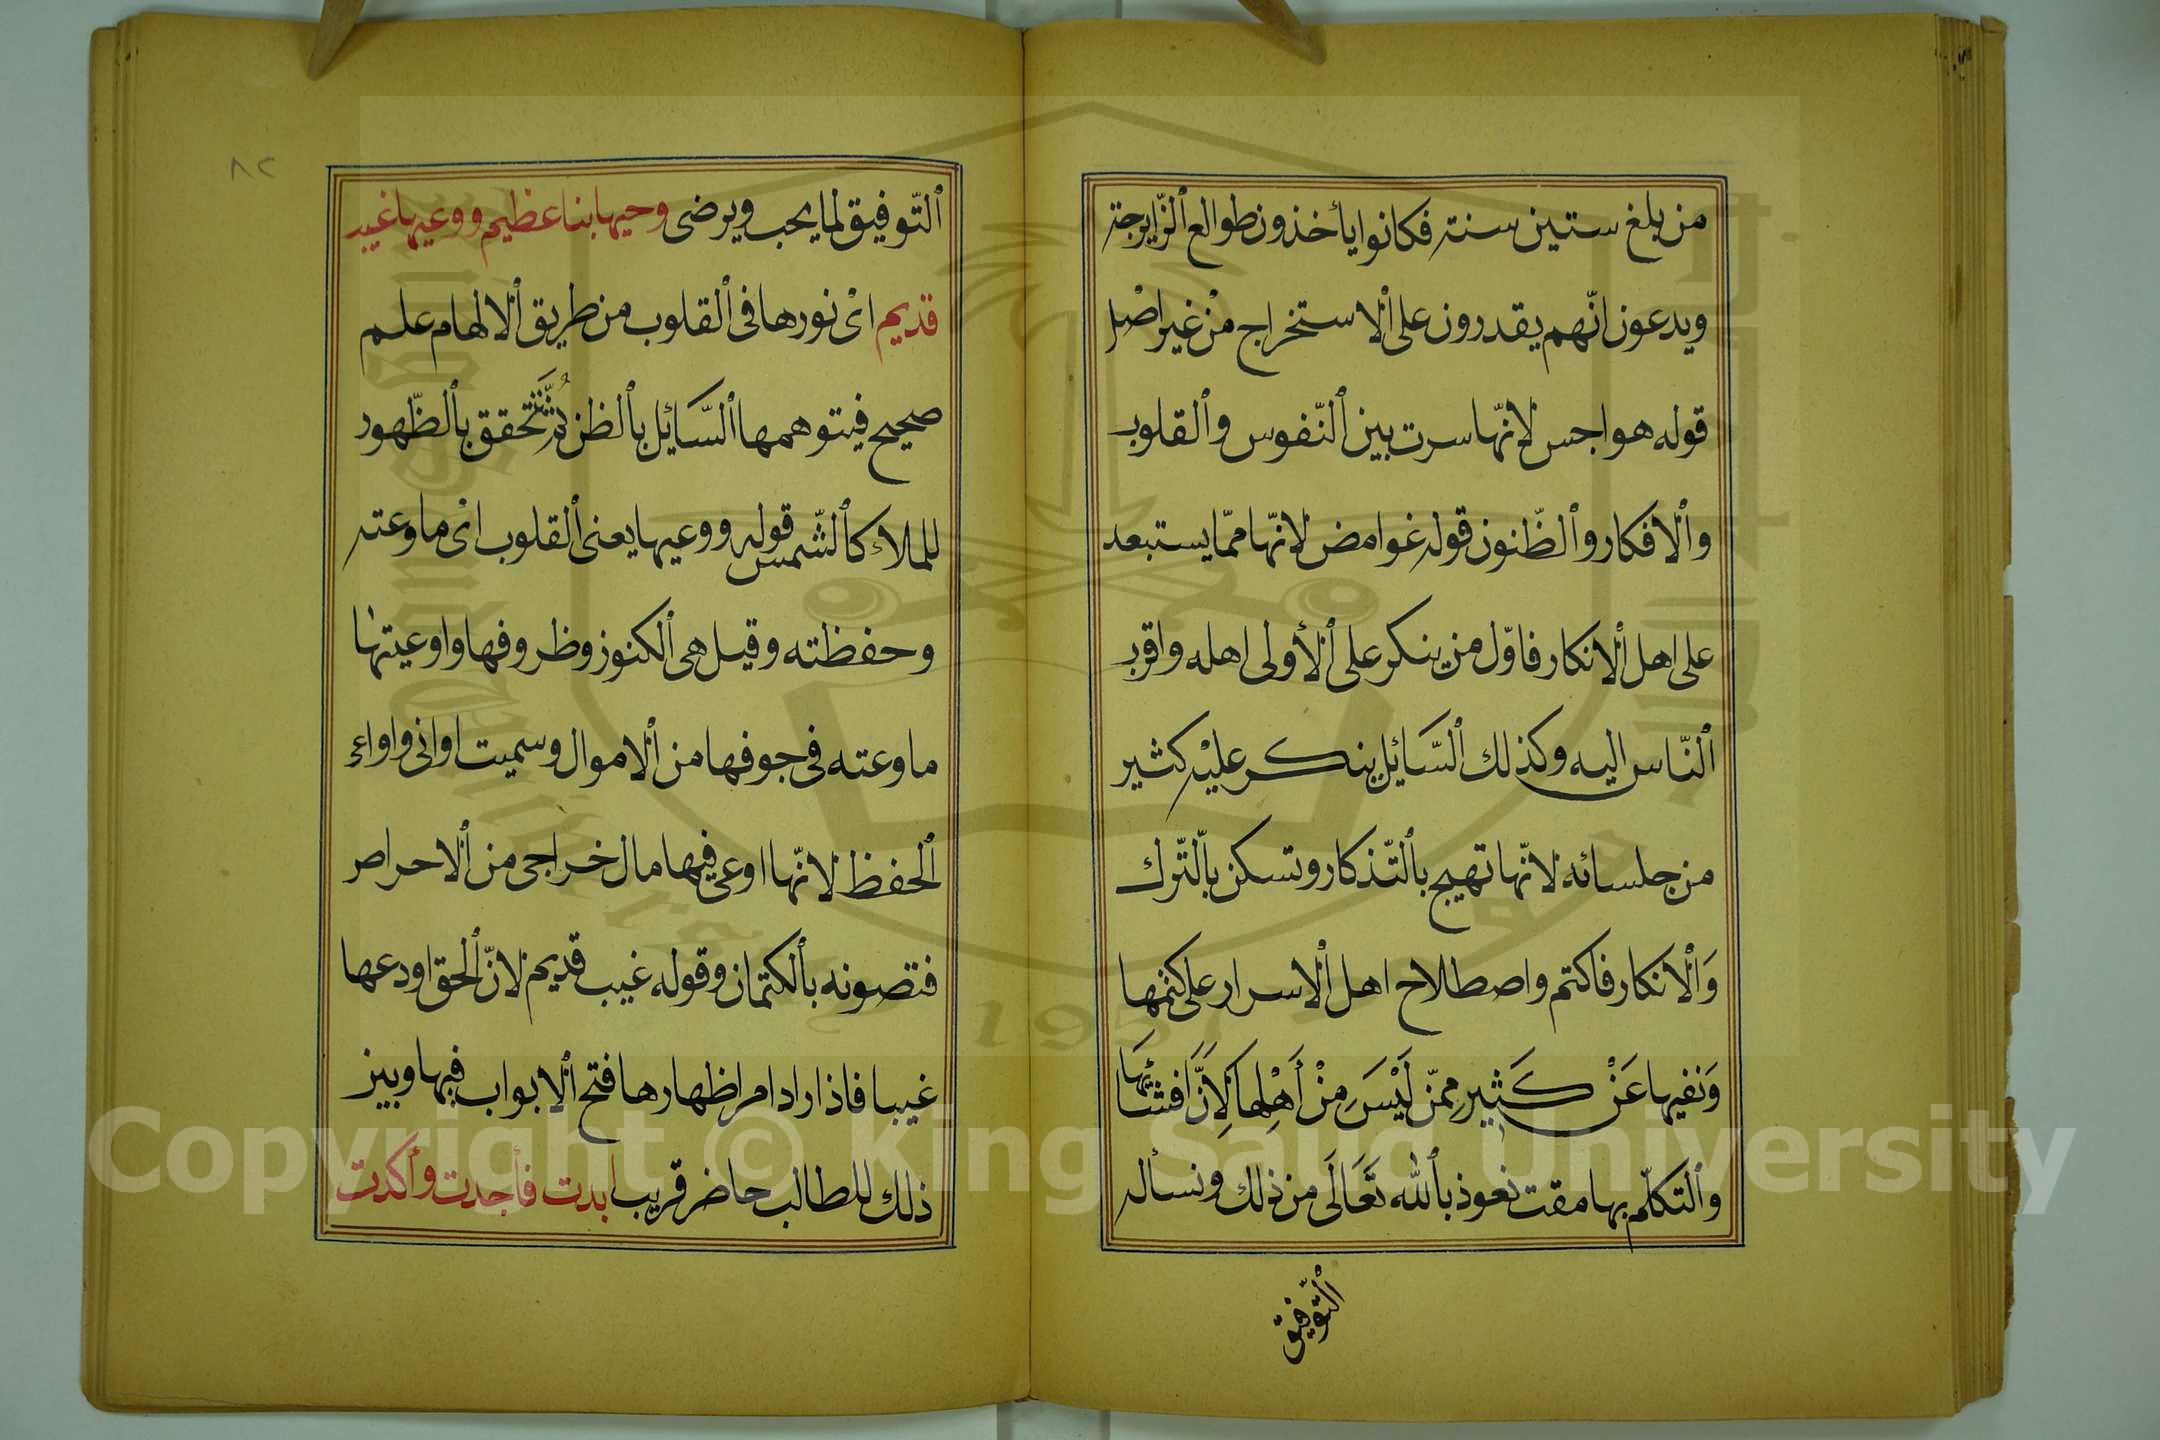 من بلغ ستين سنة فكانوا يأخذون طوالع ٱلزّايرجة
ويدعون انّهم يقدرون على ٱلاستخراج منْ غير اصْل
قوله هواجس لانّها سرت بين ٱلنّفوس وٱلقلوب
وٱلافكار وٱلظّنون قوله غوامض لانّها ممّا يستبعد
على اهل ٱلانكار فاوّل من ينكر على ٱلأولى اهله واقرب
ٱلنّاس اليه وكذلك ٱلسّائل ينكر عليْه كثير
من جلسائه لانّها تهيج بٱلتّذكار وتسكن بٱلتّرك
وَٱلانكار فاكتم واصطلاح اهل ٱلاسرار على كتمها
وَنفيها عَنْ كَثير ممّن لَيْسَ مِنْ أَهْلِهَا لِاَنَّ افشَائَهَا
وٱلتكلّم بها مقت نعوذ بٱللّٰه تَعَالَى من ذلك ونسأله
ٱلتّوفيق
٨٢
ٱلتّوفيق لما يحب ويرضى وحيها بنا عظيم ووعيها غيب
قديم اىْ نورها فى ٱلقلوب من طريق ٱلالهام علم
صحيح فيتوهمها ٱلسّائل بٱلظن ثُمَّ تتحقق بٱلظّهور
للملاء كٱلشّمس قوله ووعيها يعنى ٱلقلوب اىْ ما وعته
وحفظته وقيل هى ٱلكنوز وظروفها واوعيتها
ما وعته فى جوفها من ٱلاموال وسميت اوانى واواعى
ٱلحفظ لانّها اوعى فيها مال خراجى من ٱلاحراص
فتصونه بٱلكتمان وقوله غيب قديم لانّ ٱلحق اودعها
غيبا فاذا اراد امر اظهارها فتح ٱلابواب فيها وبين
ذلك للطالب حاضر قريب ابدت فأجدت وأكدت
Copyright © King Saud University
1957